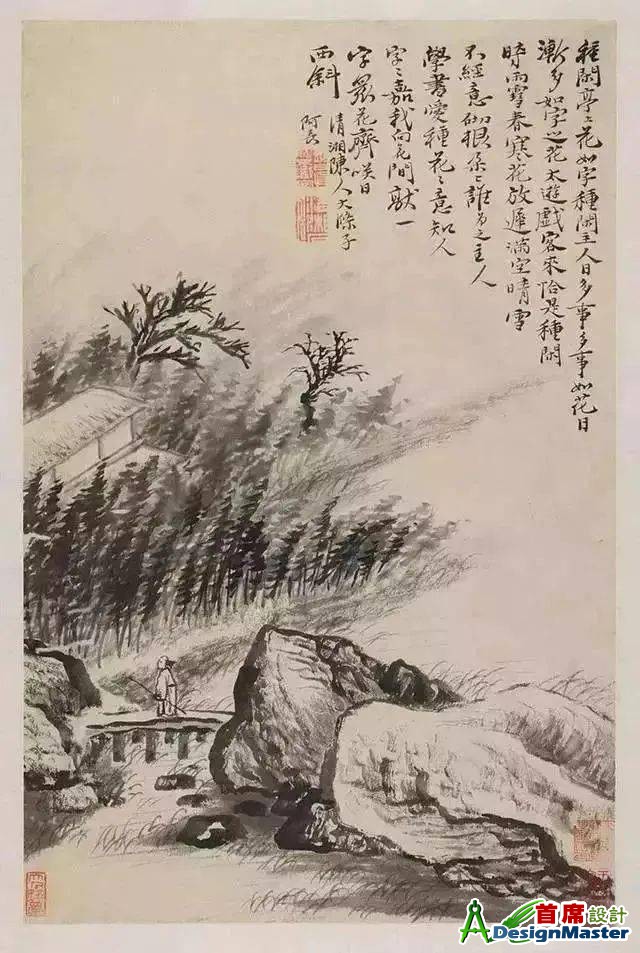 種閒亭上花如字種閒主人日多事多事如花日
漸多如字之花太遊戲客來恰是種閒
時雨雪春寒花放遲滿空晴雪
不經意砌根朵〻誰為之主人
學書愛種花〻意知人
字〻嘉我向花間獻一
字眾花齊咲日
西斜
清湘陳人大滌子
阿長
首席設計
ADesignMaster